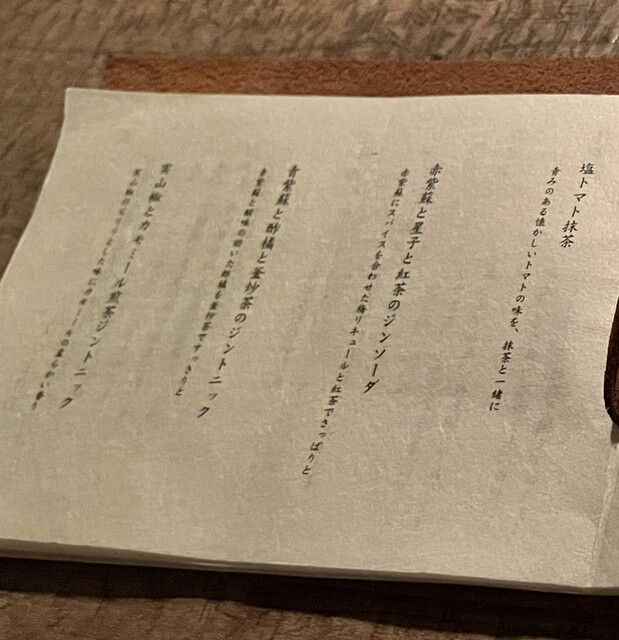 塩トマト抹茶
青みのある懐かしいトマトの味を、抹茶と一緒に
赤紫蘇と星子と紅茶のジンソーダ
赤紫蘇にスパイスを合わせた梅リキュールと紅茶でさっぱりと
青紫蘇と酢橘と釜炒茶のジントニック
青紫蘇と酸味の効いた酢橘を釜炒茶ですっきりと
実山椒とカモミール煎茶ジントニック
実山椒のピリッとした味にカモミールの柔らかい香り